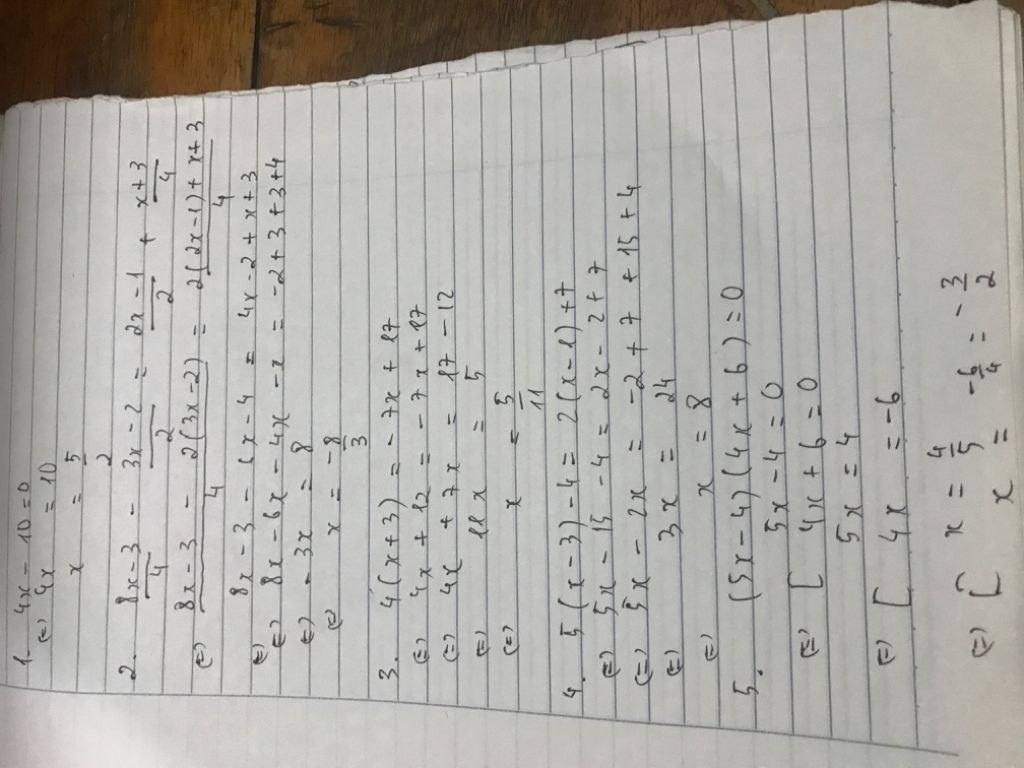 1. 4x - 10 = 0
(=) 4x = 10
x = 5/2
2. 8x-3/4 - 3x-2/2 = 2x-1/2 + x+3/4
(=) 8x-3/4 - 2(3x-2)/4 = 2(2x-1)+x+3/4
(=) 8x-3-6x-4 = 4x-2+x+3
(=) 8x-6x-4x-x = -2+3+3+4
(=) -3x = 8
(=) x = -8/3
3. 4(x+3) = -7x+17
(=) 4x+12 = -7x+17
(=) 4x+7x = 17-12
(=) 11x = 5
(=) x = 5/11
4. 5(x-3)-4 = 2(x-1)+7
(=) 5x-15-4 = 2x-2+7
(=) 5x-2x = -2+7+15+4
(=) 3x = 24
(=) x = 8
5. (5x-4)(4x+6)=0
(=) [ 5x-4=0
4x+6=0
(=) [ 5x=4
4x=-6
(=) [ x = 4/5
x = -6/4 = -3/2